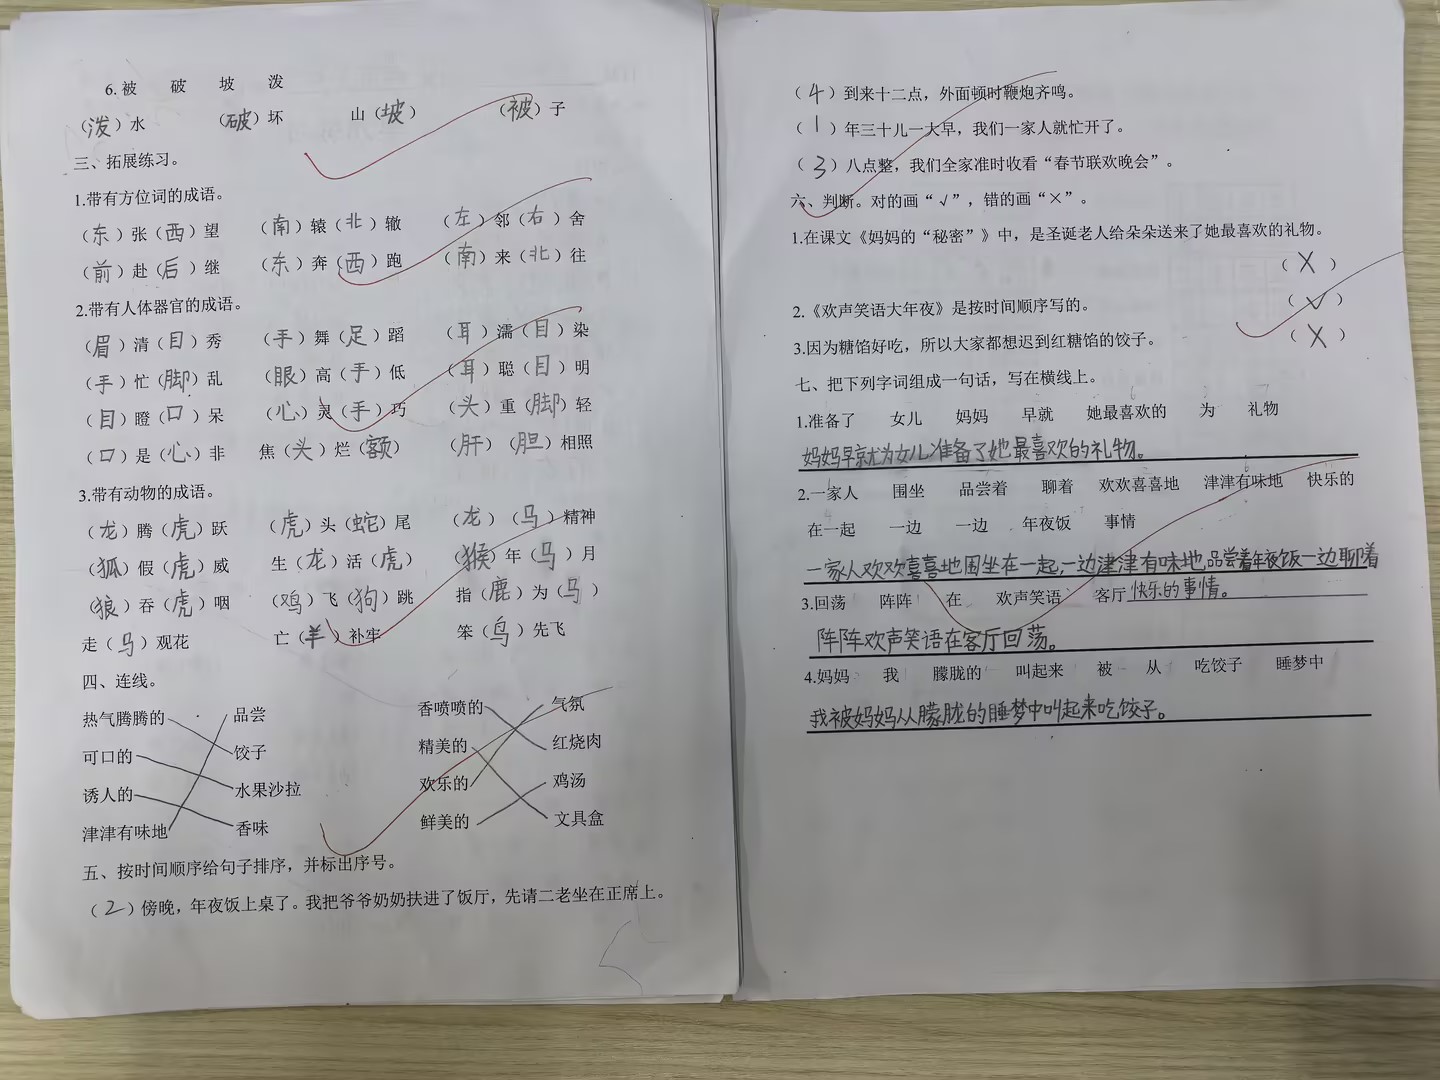 6.被 破 坡 泼
（泼）水 （破）坏 山（坡） （被）子
三、拓展练习。
1.带有方位词的成语。
（东）张（西）望 （南）辕（北）辙 （左）邻（右）舍
（前）赴（后）继 （东）奔（西）跑 （南）来（北）往
2.带有人体器官的成语。
（眉）清（目）秀 （手）舞（足）蹈 （耳）濡（目）染
（手）忙（脚）乱 （眼）高（手）低 （耳）聪（目）明
（目）瞪（口）呆 （心）灵（手）巧 （头）重（脚）轻
（口）是（心）非 焦（头）烂（额） （肝）（胆）相照
3.带有动物的成语。
（龙）腾（虎）跃 （虎）头（蛇）尾 （龙）（马）精神
（狐）假（虎）威 生（龙）活（虎） （猴）年（马）月
（狼）吞（虎）咽 （鸡）飞（狗）跳 指（鹿）为（马）
走（马）观花 亡（羊）补牢 笨（鸟）先飞
四、连线。
热气腾腾的 品尝 香喷喷的 气氛
可口的 饺子 精美的 红烧肉
诱人的 水果沙拉 欢乐的 鸡汤
津津有味地 香味 鲜美的 文具盒
五、按时间顺序给句子排序，并标出序号。
（2）傍晚，年夜饭上桌了。我把爷爷奶奶扶进了饭厅，先请二老坐在正席上。
（4）到来十二点，外面顿时鞭炮齐鸣。
（1）年三十儿一大早，我们一家人就忙开了。
（3）八点整，我们全家准时收看“春节联欢晚会”。
六、判断。对的画“√”，错的画“×”。
1.在课文《妈妈的“秘密”》中，是圣诞老人给朵朵送来了她最喜欢的礼物。
（×）
2.《欢声笑语大年夜》是按时间顺序写的。 （√）
3.因为糖馅好吃，所以大家都想迟到红糖馅的饺子。 （×）
七、把下列字词组成一句话，写在横线上。
1.准备了 女儿 妈妈 早就 她最喜欢的 为 礼物
妈妈早就为女儿准备了她最喜欢的礼物。
2.一家人 围坐 品尝着 聊着 欢欢喜喜地 津津有味地 快乐的
在一起 一边 一边 年夜饭 事情
一家人欢欢喜喜地围坐在一起，一边津津有味地品尝着年夜饭一边聊着
快乐的事情。
3.回荡 阵阵 在 欢声笑语 客厅
阵阵欢声笑语在客厅回荡。
4.妈妈 我 朦胧的 叫起来 被 从 吃饺子 睡梦中
我被妈妈从朦胧的睡梦中叫起来吃饺子。